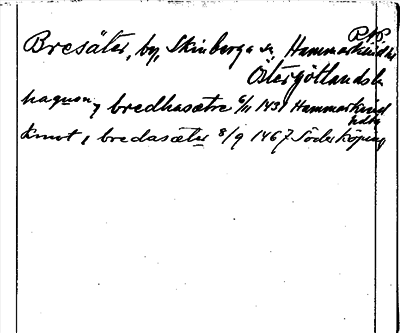 P.N.P.
Bresäter, by, Skinberga sn, Hammarkinds hd
Östergötlands l.
haquon, bredhasætre 6/11 1431 Hammarkind
hdtg
Knut, bredasæter 8/9 1467 Söderköping